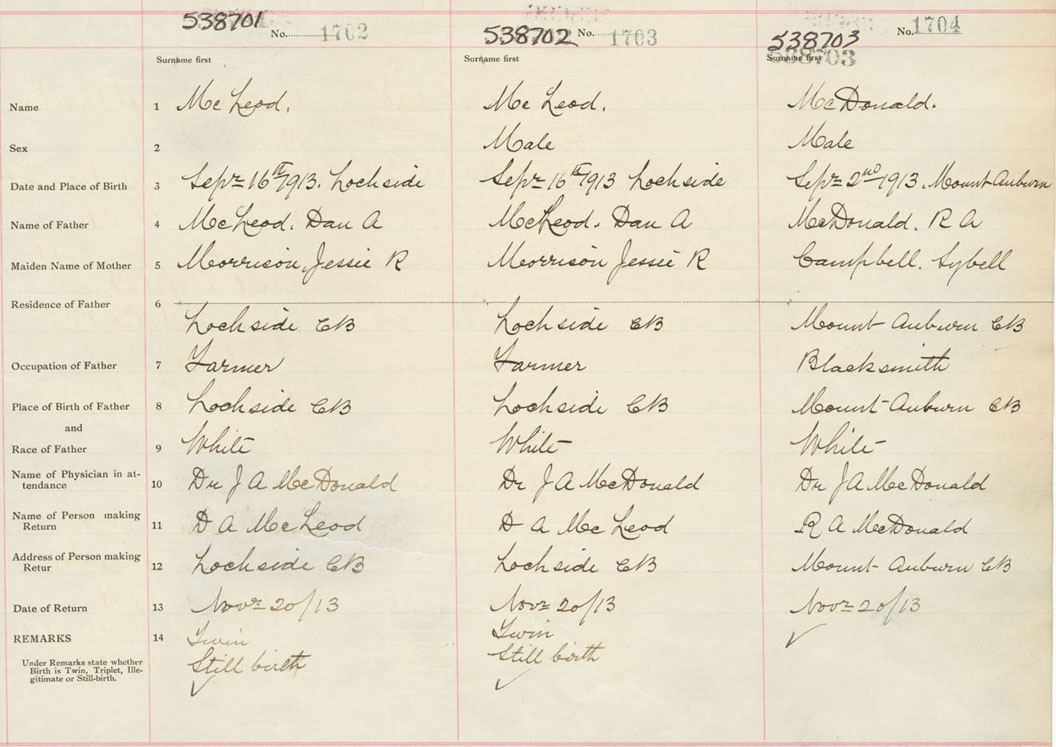 538701 No. 1702 538702 No. 1703 538703 No. 1704
Surname first Surname first Surname first 538703
Name 1 McLeod. McLeod. McDonald.
Sex 2 Male Male
Date and Place of Birth 3 Sepr 16th/1913. Lochside Sepr 16th/1913 Lochside Sepr 2nd/1913. Mount Auburn
Name of Father 4 McLeod. Dan A McLeod. Dan A McDonald. R A
Maiden Name of Mother 5 Morrison, Jessie R Morrison Jessie R Campbell. Sybell
Residence of Father 6
Lochside CB Lochside CB Mount Auburn CB
Occupation of Father 7 Farmer Farmer Blacksmith
Place of Birth of Father 8 Lochside CB Lochside CB Mount Auburn CB
and
Race of Father 9 White White White
Name of Physician in at-
tendance 10 Dr J A McDonald Dr J A McDonald Dr J A McDonald
Name of Person making
Return 11 D A McLeod D A McLeod R A McDonald
Address of Person making
Retur 12 Lochside CB Lochside CB Mount Auburn CB
Date of Return 13 Novr 20/13 Novr 20/13 Novr 20/13
REMARKS 14 Twin Twin
Still birth Still birth
Under Remarks state whether
Birth is Twin, Triplet, Ille-
gitimate or Still-birth.